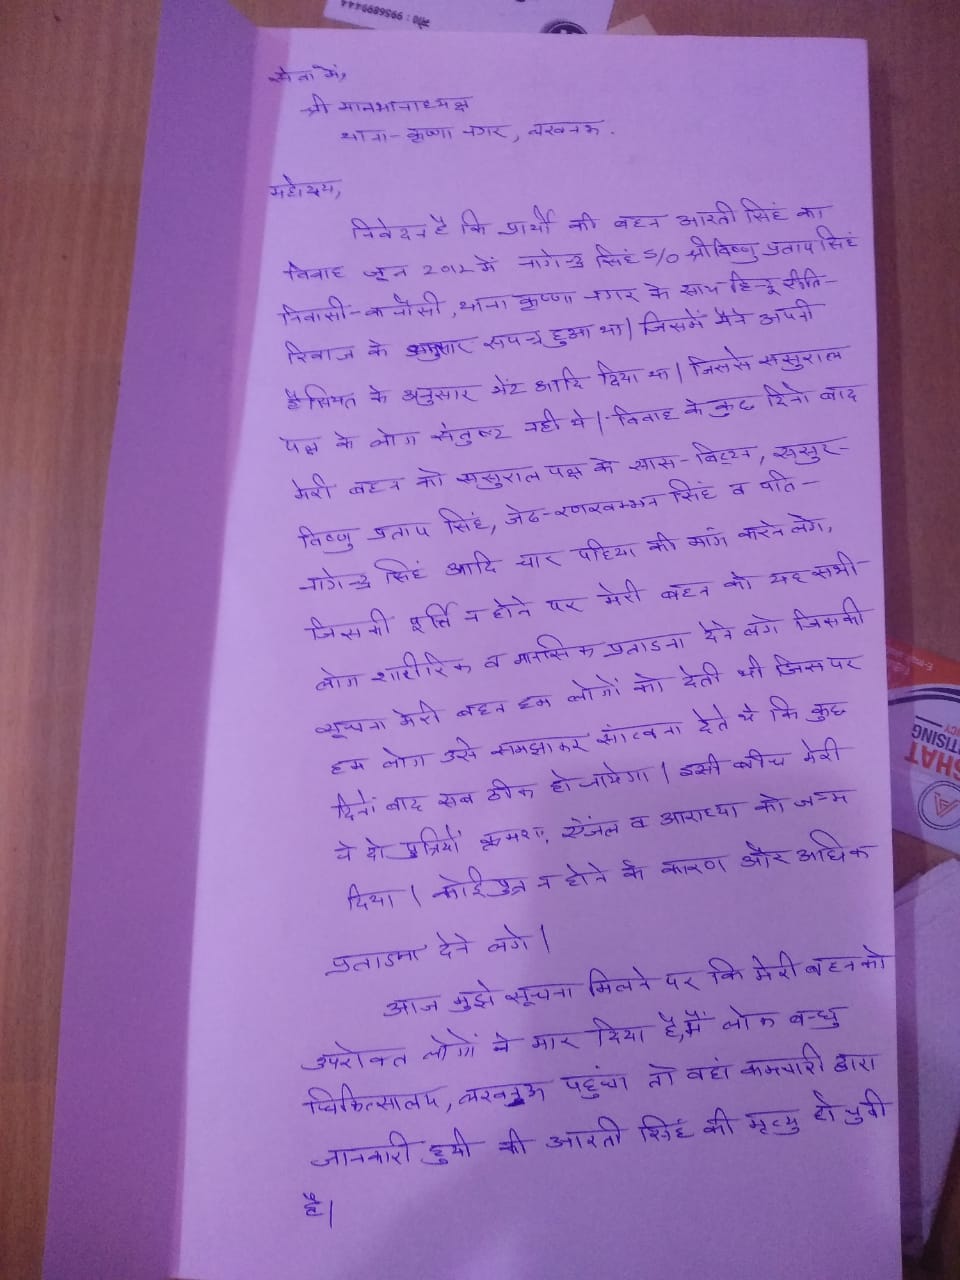 सेवा में,
श्री मान थानाध्यक्ष
थाना - कृष्णा नगर, लखनऊ.
महोदय,
निवेदन है कि प्रार्थी की बहन आरती सिंह का
विवाह जून 2012 में नागेन्द्र सिंह S/O श्री विष्णु प्रताप सिंह
निवासी - कनौसी, थाना कृष्णा नगर के साथ हिन्दू रीति-
रिवाज के अनुसार सपन्न हुआ था। जिसमें मैंने अपनी
हैसियत के अनुसार भेंट आदि दिया था। जिससे ससुराल
पक्ष के लोग संतुष्ट नही थे। विवाह के कुछ दिनो बाद
मेरी बहन को ससुराल पक्ष के सास- , ससुर-
विष्णु प्रताप सिंह, जेठ- सिंह व पति-
नागेन्द्र सिंह आदि चार पहिया की मांग करने लगे,
जिसकी पूर्ति न होने पर मेरी बहन को यह सभी
लोग शारीरिक व मानसिक प्रताडना देने लगे जिसकी
सूचना मेरी बहन हम लोगों को देती थी जिस पर
हम लोग उसे समझाकर सांत्वना देते थे कि कुछ
दिनों बाद सब ठीक हो जायेगा। इसी बीच मेरी
ने दो पुत्रियों क्रमशः, ऐंजल व आराध्या को जन्म
दिया। कोई पुत्र न होने के कारण और अधिक
प्रताडना देने लगे।
आज मुझे सूचना मिलने पर कि मेरी बहन को
उपरोक्त लोगों ने मार दिया है, मैं लोक बन्धु
चिकित्सालय, लखनऊ पहुंचा तो वहां कर्मचारी द्वारा
जानकारी हुयी की आरती सिंह की मृत्यु हो चुकी
है।